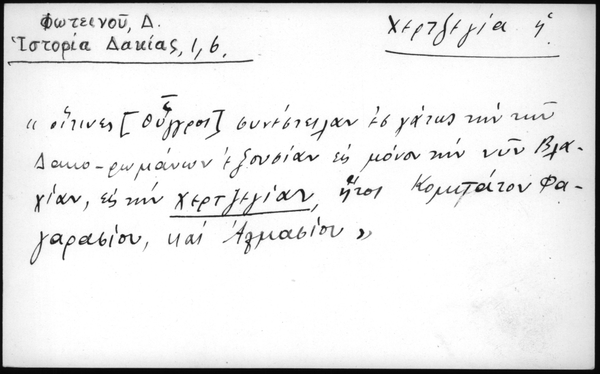 Φωτεινοῦ, Δ.
Ἱστορία Δακίας, 1, 6.
χερτζεγία ἡ
« οἵτινες [οἱ Οὔγγροι] συνέστειλαν ἐσχάτως τὴν τῶν
Δακο-ρωμάνων ἐξουσίαν εἰς μόνον τὴν νῦν Βλα-
χίαν, εἰς τὴν χερτζεγίαν, ἤτοι Κομιτάτον Φα-
γαρασίου, καὶ Ἀλμασίου »